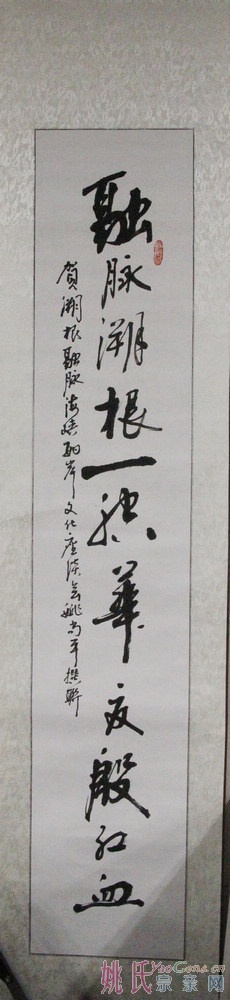 融脉溯根一脉华夏殷红血
贺溯根融脉海峡两岸文化座谈会姚尚平撰联
姚氏宗亲网
YaoGens.cn